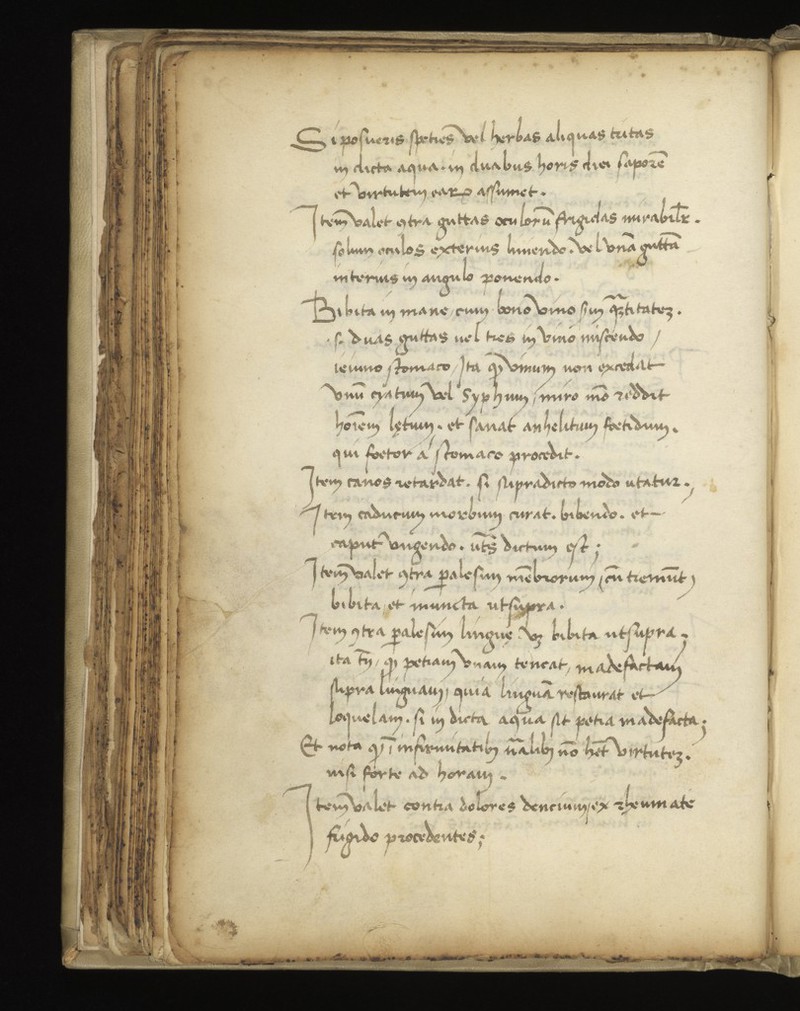 Si posueris speties vel herbas aliquas tritas
in dicta aqua. in duabus horis diei saporē
et virtutem earꝝ assumet.
Itē valet ꝯtra guttas oculorū frigidas mirabilr̄.
solum oculos exterius liniendo. vel unā guttā
interius in angulo ponendo.
Bibita in mane, cum bono vino sm̄ quātitateꝫ.
.s. duas guttas uel tres in vino miscendo /
ieiuno stomaco / Ita qđ vinum non excedat
vnū cyatum vel syphum, miro mō reddit
hoīem lętum. et sanat anhelitum foetidum.
qui foetor a stomaco procedit.
Item canos retardat. si supradicto modo utatur.
Item caducum morbum curat. bibendo. et
caput vngendo. ut s̄ dictum est;
Itē valet ꝯtra ꝑalesim mēbrorum, cū tremūt,
bibita et inuncta ut supra.
Item ꝯtra ꝑalesim linguę vꝫ bibita ut supra;
ita tn̄, qđ petiam vnam teneat, madefactam
supra linguam, quia linguā restaurat et
loquelam. si in dicta aqua sit petia madefacta;
Et nota qđ ī infirmitatibꝰ nāalibꝰ nō het̄ virtuteꝫ.
nisi forte ad horam.
Itē valet contra dolores dencium, ex rheumate
frigido procedentes;